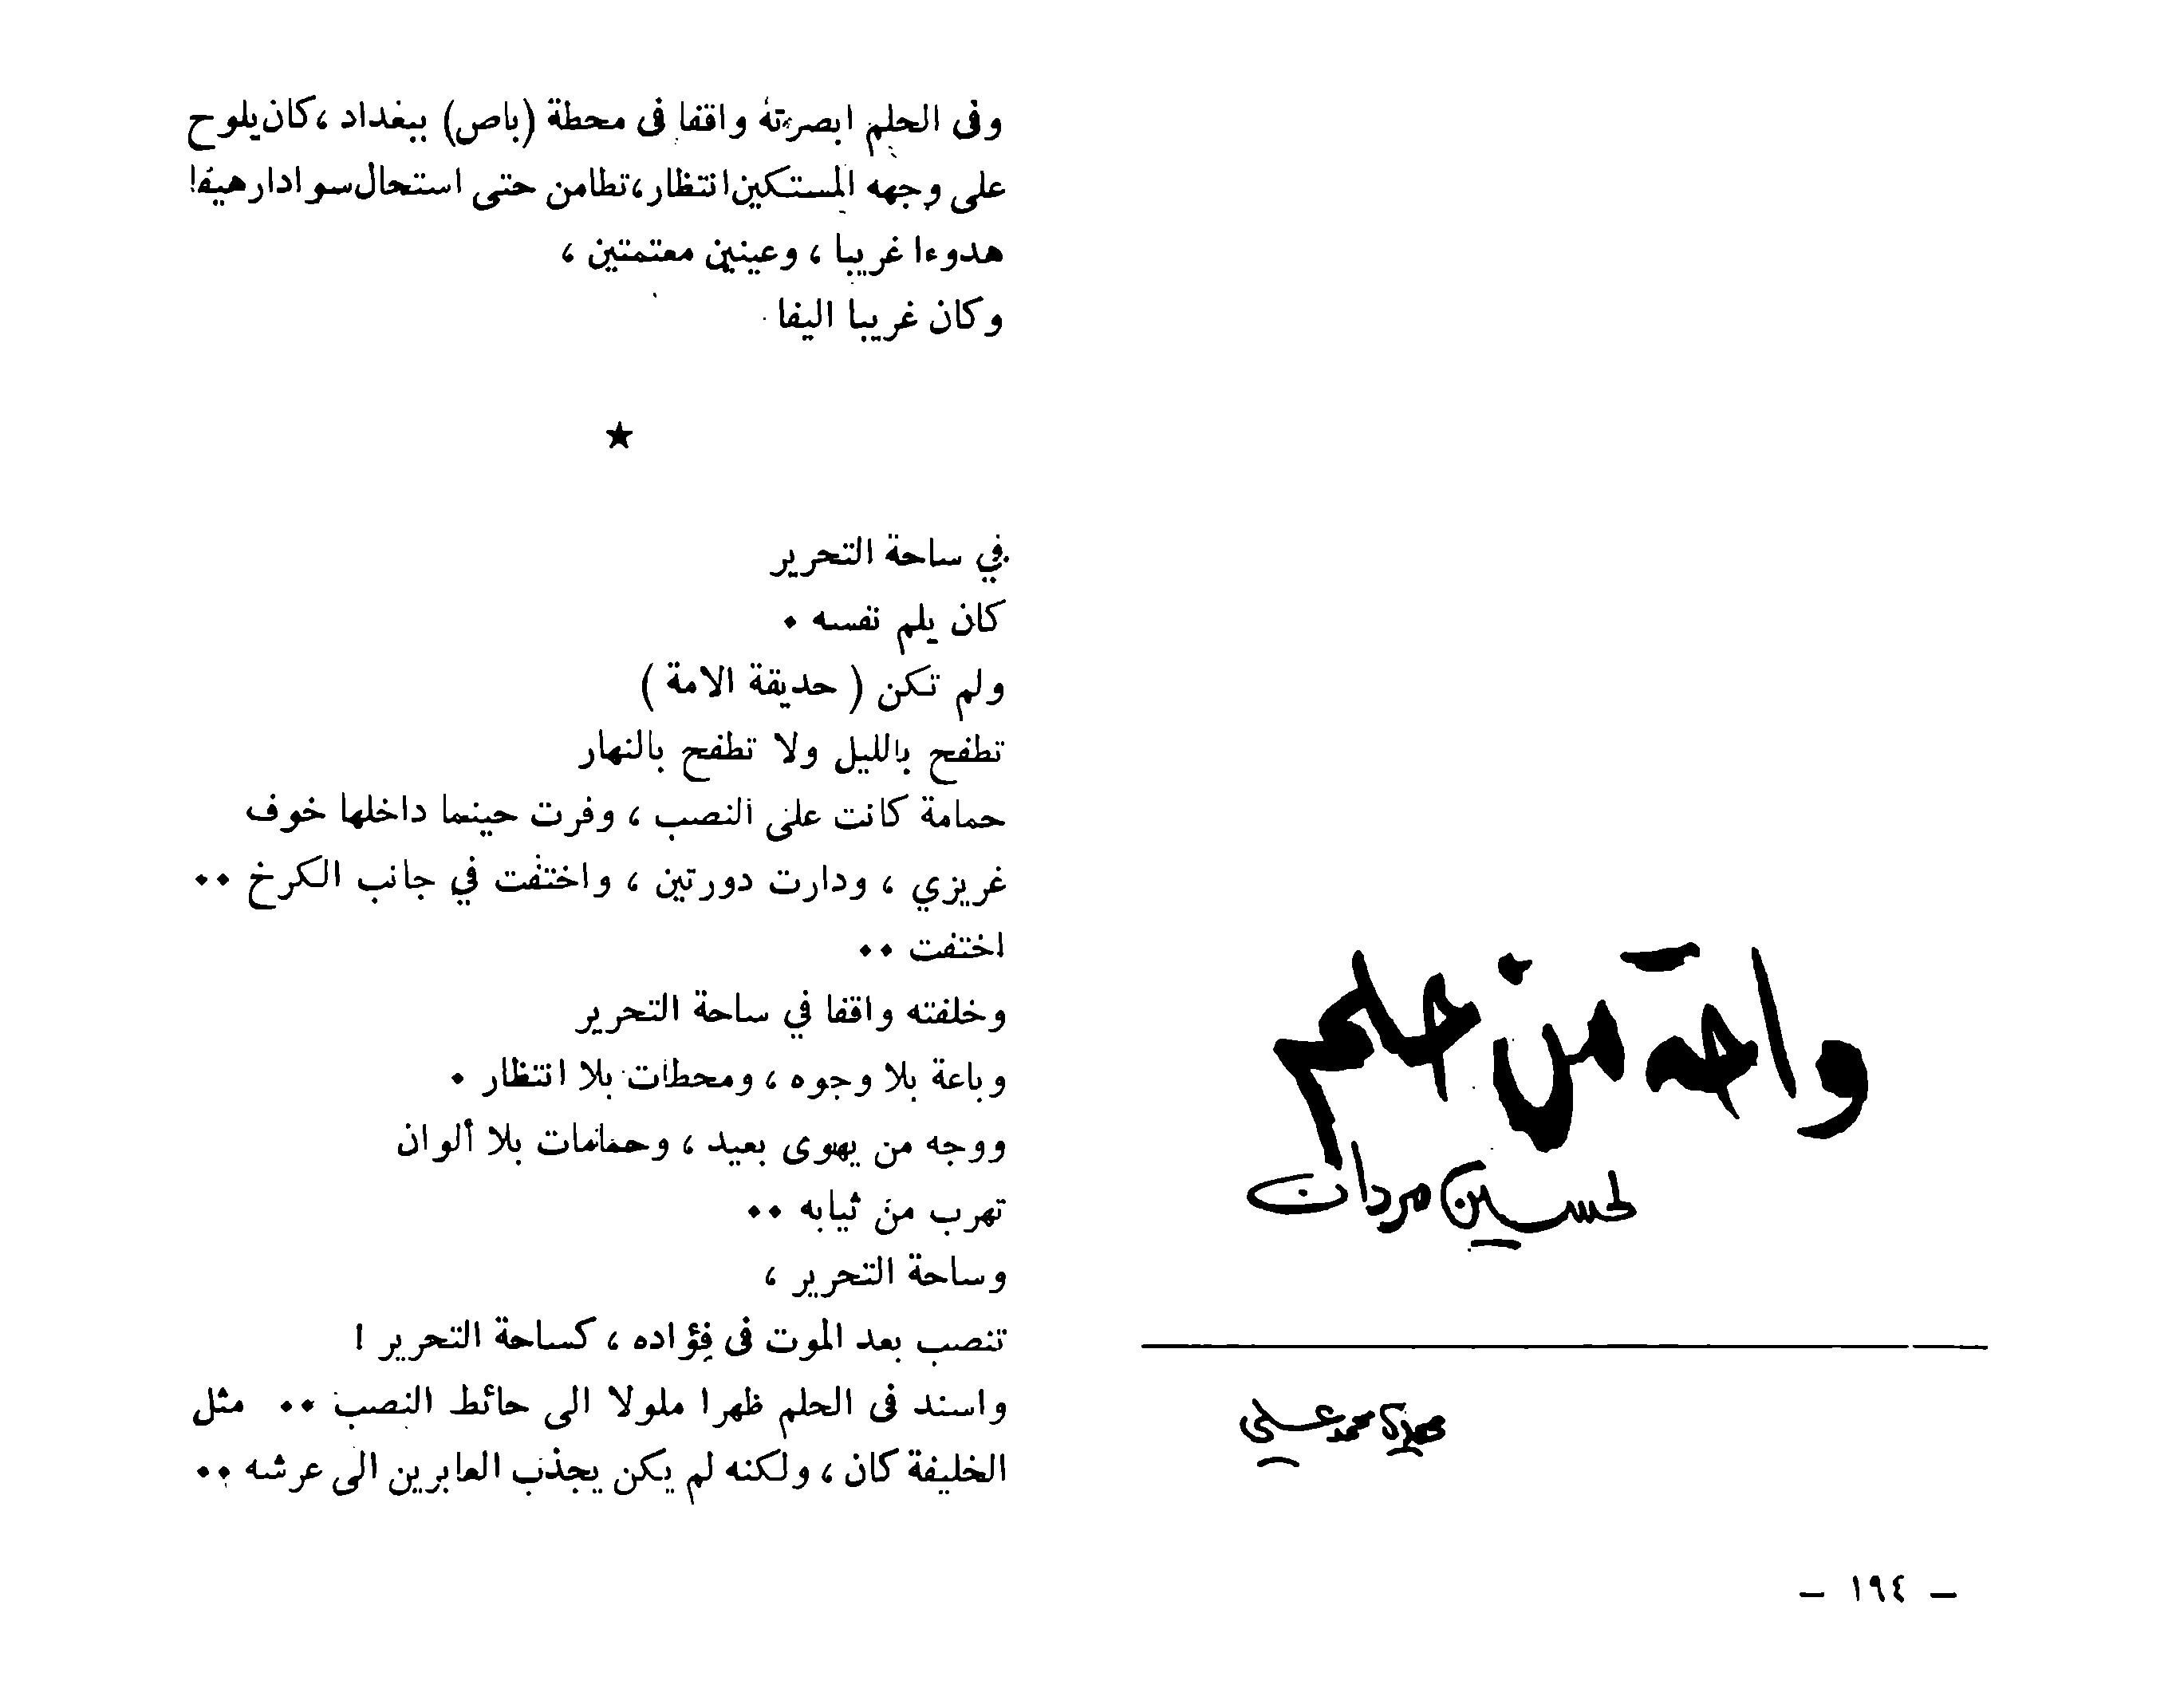 واحة من حلم
لحسين مردان
محمد علي
– ١٩٤ –
وفى الحلم ابصرته واقفا فى محطة (باص) ببغداد ، كان يلوح
على وجهه المستكين انتظار ، تطامن حتى استحال سوادا رهيفا
هدوءا غريبا ، وعينين معتمتين ،
وكان غريبا اليفا
★
في ساحة التحرير
كان يلم نفسه .
ولم تكن ( حديقة الامة )
تطفح بالليل ولا تطفح بالنهار
حمامة كانت على النصب ، وفرت حينما داخلها خوف
غريزي ، ودارت دورتين ، واختفت في جانب الكرخ ..
اختفت ..
وخلفته واقفا في ساحة التحرير
وباعة بلا وجوه ، ومحطات بلا انتظار .
ووجه من يهوى بعيد ، وحمامات بلا ألوان
تهرب من ثيابه ..
وساحة التحرير ،
تنصب بعد الموت فى فؤاده ، كساحة التحرير !
واسند فى الحلم ظهرا ملولا الى حائط النصب .. مثل
الخليفة كان ، ولكنه لم يكن يجذب العابرين الى عرشه ..